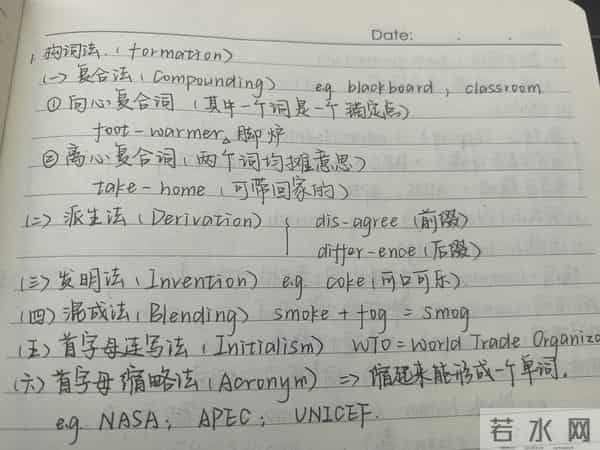 Date: . . .
1. 构词法.(formation)
(一) 复合法 (Compounding) eg blackboard, classroom
① 向心复合词 (其中一个词是一个锚定点)
foot-warmer 脚炉
② 离心复合词 (两个词均摊意思)
take-home (可带回家的)
(二) 派生法 (Derivation) { dis-agree (前缀)
differ-ence (后缀)
(三) 发明法 (Invention) e.g. coke (可口可乐)
(四) 混成法 (Blending) smoke + fog = smog
(五) 首字母连写法 (Initialism) WTO = World Trade Organiza
(六) 首字母缩略法 (Acronym) => 缩起来能形成一个单词.
e.g. NASA; APEC; UNICEF.
若水网